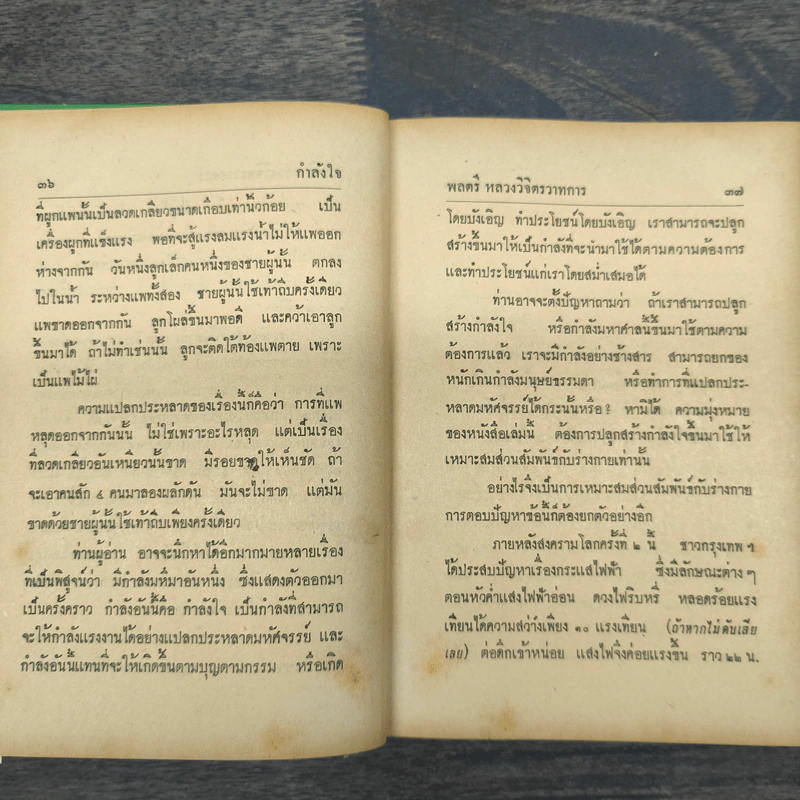 ๓๖ กำลังใจ
ที่ผูกแพนั้นเป็นลวดเกลียวขนาดเกือบเท่านิ้วก้อย เป็น
เครื่องผูกที่แข็งแรง พอที่จะสู้แรงลมแรงน้ำไม่ให้แพออก
ห่างจากกัน วันหนึ่งลูกเล็กคนหนึ่งของชายผู้นั้น ตกลง
ไปในน้ำ ระหว่างแพทั้งสอง ชายผู้นั้นใช้เท้าถีบครั้งเดียว
แพขาดออกจากกัน ลูกโผล่ขึ้นมาพอดี และคว้าเอาลูก
ขึ้นมาได้ ถ้าไม่ทำเช่นนั้น ลูกจะติดใต้ท้องแพตาย เพราะ
เป็นแพไม้ไผ่
ความแปลกประหลาดของเรื่องนี้ก็คือว่า การที่แพ
หลุดออกจากกันนั้น ไม่ใช่เพราะอะไรหลุด แต่เป็นเรื่อง
ที่ลวดเกลียวอันเหนียวนั้นขาด มีรอยขาดให้เห็นชัด ถ้า
จะเอาคนสัก ๔ คนมาลองผลักดัน มันจะไม่ขาด แต่มัน
ขาดด้วยชายผู้นั้นใช้เท้าถีบเพียงครั้งเดียว
ท่านผู้อ่าน อาจจะนึกหาได้อีกมากมายหลายเรื่อง
ที่เป็นพิสูจน์ว่า มีกำลังมหึมาอันหนึ่ง ซึ่งแสดงตัวออกมา
เป็นครั้งคราว กำลังอันนี้คือ กำลังใจ เป็นกำลังที่สามารถ
จะให้กำลังแรงงานได้อย่างแปลกประหลาดมหัศจรรย์ และ
กำลังอันนี้แทนที่จะให้เกิดขึ้นตามบุญตามกรรม หรือเกิด
พลตรี หลวงวิจิตรวาทการ ๓๗
โดยบังเอิญ ทำประโยชน์โดยบังเอิญ เราสามารถจะปลุก
สร้างขึ้นมาให้เป็นกำลังที่จะนำมาใช้ได้ตามความต้องการ
และทำประโยชน์แก่เราโดยสม่ำเสมอได้
ท่านอาจจะตั้งปัญหาถามว่า ถ้าเราสามารถปลุก
สร้างกำลังใจ หรือกำลังมหาศาลนี้ขึ้นมาใช้ตามความ
ต้องการแล้ว เราจะมีกำลังอย่างช้างสาร สามารถยกของ
หนักเกินกำลังมนุษย์ธรรมดา หรือทำการที่แปลกประ-
หลาดมหัศจรรย์ได้กระนั้นหรือ? หามิได้ ความมุ่งหมาย
ของหนังสือเล่มนี้ ต้องการปลุกสร้างกำลังใจขึ้นมาใช้ให้
เหมาะสมส่วนสัมพันธ์กับร่างกายเท่านั้น
อย่างไรจึงเป็นการเหมาะสมส่วนสัมพันธ์กับร่างกาย
การตอบปัญหาข้อนี้ก็ต้องยกตัวอย่างอีก
ภายหลังสงครามโลกครั้งที่ ๒ นี้ ชาวกรุงเทพ ฯ
ได้ประสบปัญหาเรื่องกระแสไฟฟ้า ซึ่งมีลักษณะต่าง ๆ
ตอนหัวค่ำแสงไฟฟ้าอ่อน ดวงไฟริบหรี่ หลอดร้อยแรง
เทียนได้ความสว่างเพียง ๑๐ แรงเทียน (ถ้าหากไม่ดับเสีย
เลย) ต่อดึกเข้าหน่อย แสงไฟจึงค่อยแรงขึ้น ราว ๒๒ น.